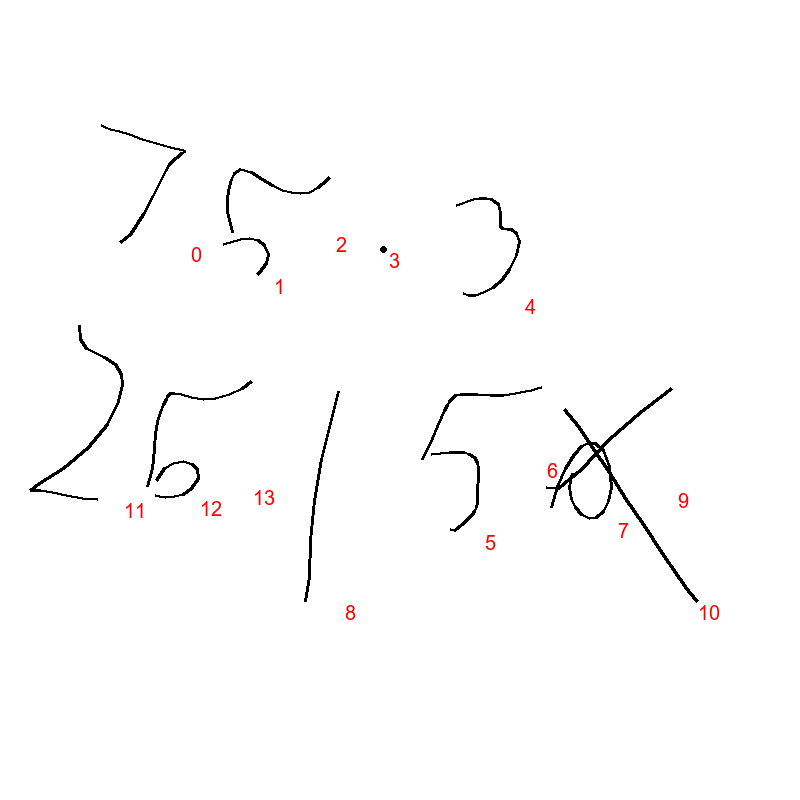 75.3
0 1 2 3 4
2515
11 12 13 8 5 6 7 9 10